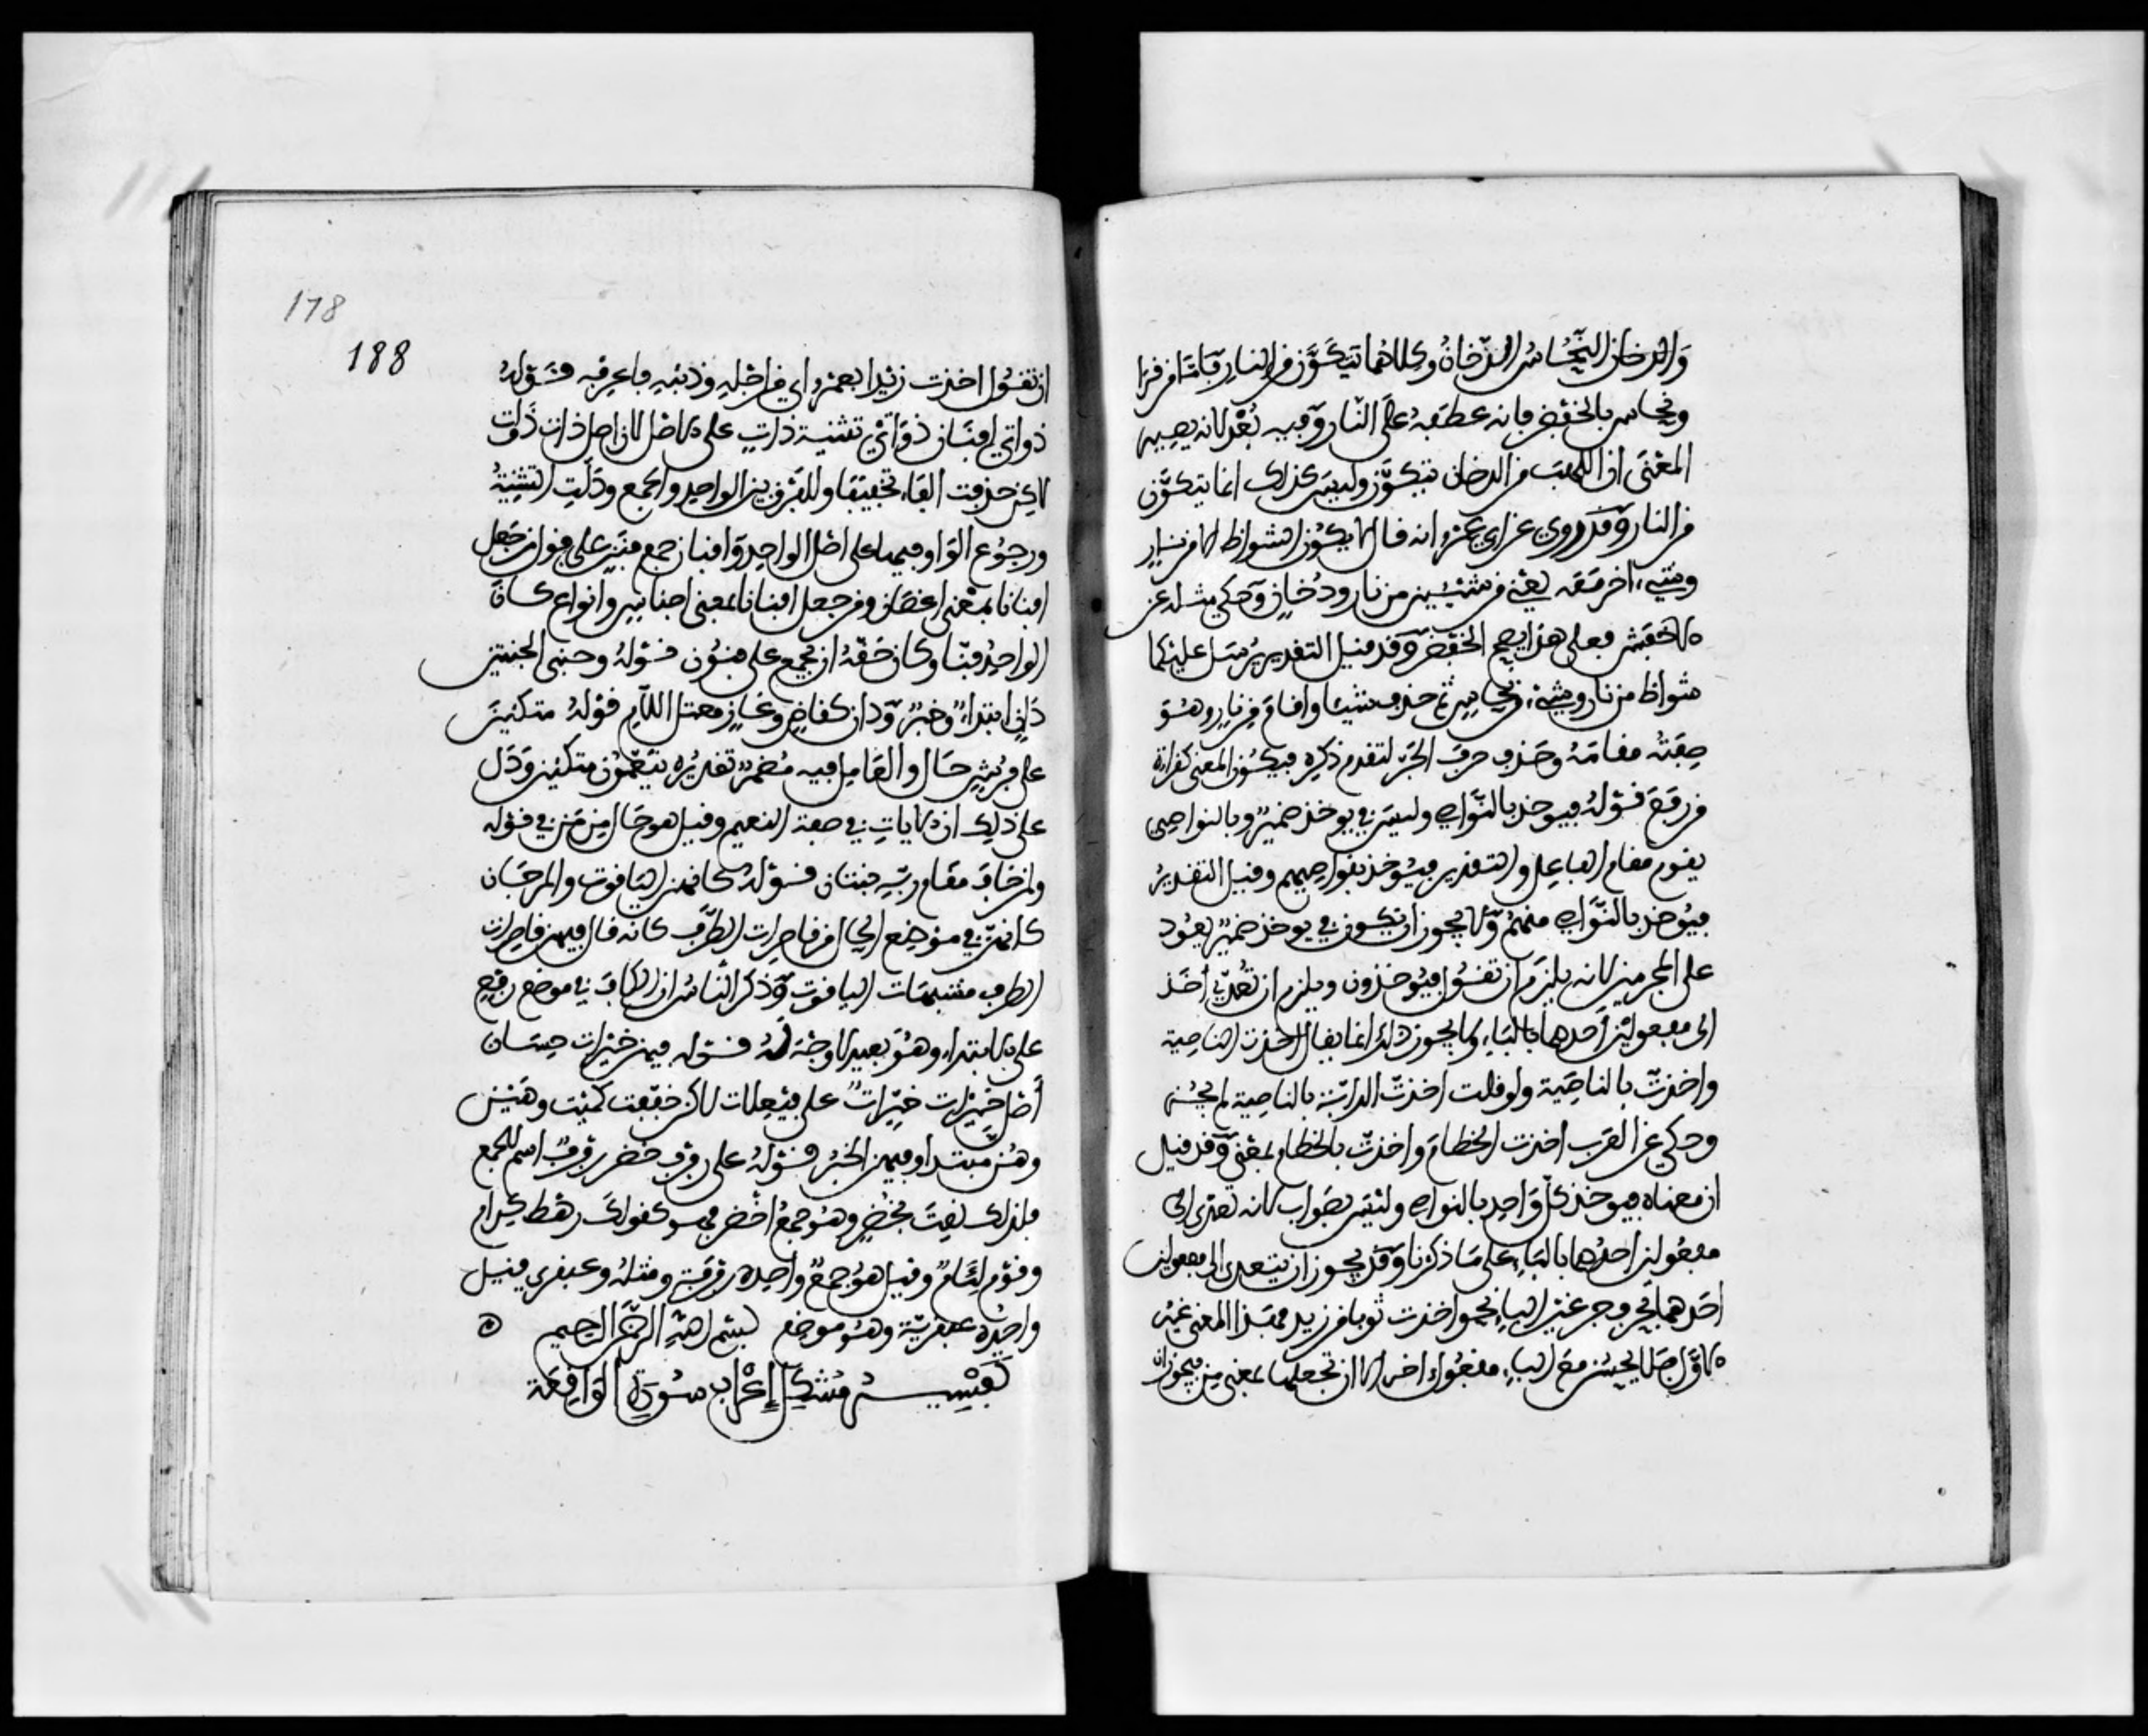 والدخان النحاس الدخان وكلاهما يتكون من النار فاما من قرا
ونحاس بالخفض فانه عطفه على النار وفيه بعد لانه يصير
المعنى ان اللهب من الدخان يتكون وليس كذلك انما يتكون
من النار وقد روي عن ابي عمرو انه قال لا يكون الشواظ الا من نار
وشيء اخر معه يعني من شيئين من نار ودخان وحكي مثله عن
الاخفش فعلى هذا يصح الخفض وقد قيل التقدير يرسل عليكما
شواظ من نار وشيء من نحاس ثم حذف شيئا واقام من نار وهو
صفته مقامه وحذف حرف الجر لتقدم ذكره فيكون المعنى كقراة
من رفع قوله فيوخذ بالنواصي وليس في يوخذ ضمير وبالنواصي
يقوم مقام الفاعل والتقدير فيوخذ بنواصيهم وقيل التقدير
فيوخذ بالنواصي منهم ولا يجوز ان يكون في يوخذ ضمير يعود
على المجرمين لانه يلزم ان تقول فيوخذون ويلزم ان تعدي اخذ
الى مفعولين احدهما بالباء ولا يجوز ذلك انما يقال اخذت الناصية
واخذت بالناصية ولو قلت اخذت الدابة بالناصية لم يجز
وحكي عن العرب اخذت الخطام واخذت بالخطام بمعنى وقد قيل
ان معناه فيوخذ كل واحد بالنواصي وليس بصواب لانه تعدى الى
مفعولين احدهما بالباء على ما ذكرنا وقد يجوز ان يتعدى الى مفعولين
احدهما بحرف جر غير الباء نحو اخذت ثوبا من زيد فهذا المعنى غير
الاول فلا يحسن مع الباء مفعول اخر الا ان تجعلها بمعنى من فيجوز ان
178
188
ان تقول اخذت زيدا بعمرو اي من اجله وذنبه فاعرفه قوله
ذواتي افنان ذواتي تثنية ذات على الاصل لان اصل ذات ذوات
لاكن حذفت الواو تخفيفا وللفرق بين الواحد والجمع ودلت التثنية
ورجوع الواو فيها على اصل الواحد وافنان جمع فنن على قول من جعل
افنانا بمعنى اغصان ومن جعل افنانا بمعنى اجناس وانواع كان
الواحد فنا وكان حقه ان يجمع على فنون قوله وجنى الجنتين
دان ابتداء وخبر ودان كقاض وغاز معتل اللام قوله متكئين
على فرش حال والعامل فيه مضمر تقديره ينعمون متكئين ودل
على ذلك ان الايات في صفة النعيم وقيل هو حال من من في قوله
ولمن خاف مقام ربه جنتان قوله كانهن الياقوت والمرجان
كانهن في موضع الحال من قاصرات الطرف كانه قال فيهن قاصرات
الطرف مشبهات الياقوت وذكر النحاس ان الكاف في موضع رفع
على الابتداء وهو بعيد لا وجه له قوله فيهن خيرات حسان
اصل خيرات خيرات على فيعلات لاكن خففت كميت وهين
وهن مبتدا وفيهن الخبر قوله على رفرف خضر رفرف اسم للجمع
فلذلك نعت بخضر وهو جمع اخضر فهو كقولك رهط كرام
وقوم لئام وقيل هو جمع واحده رفرفة ومثله وعبقري قيل
واحده عبقرية وهو موضع بسم الله الرحمن الرحيم
تفسير مشكل اعراب سورة الواقعة